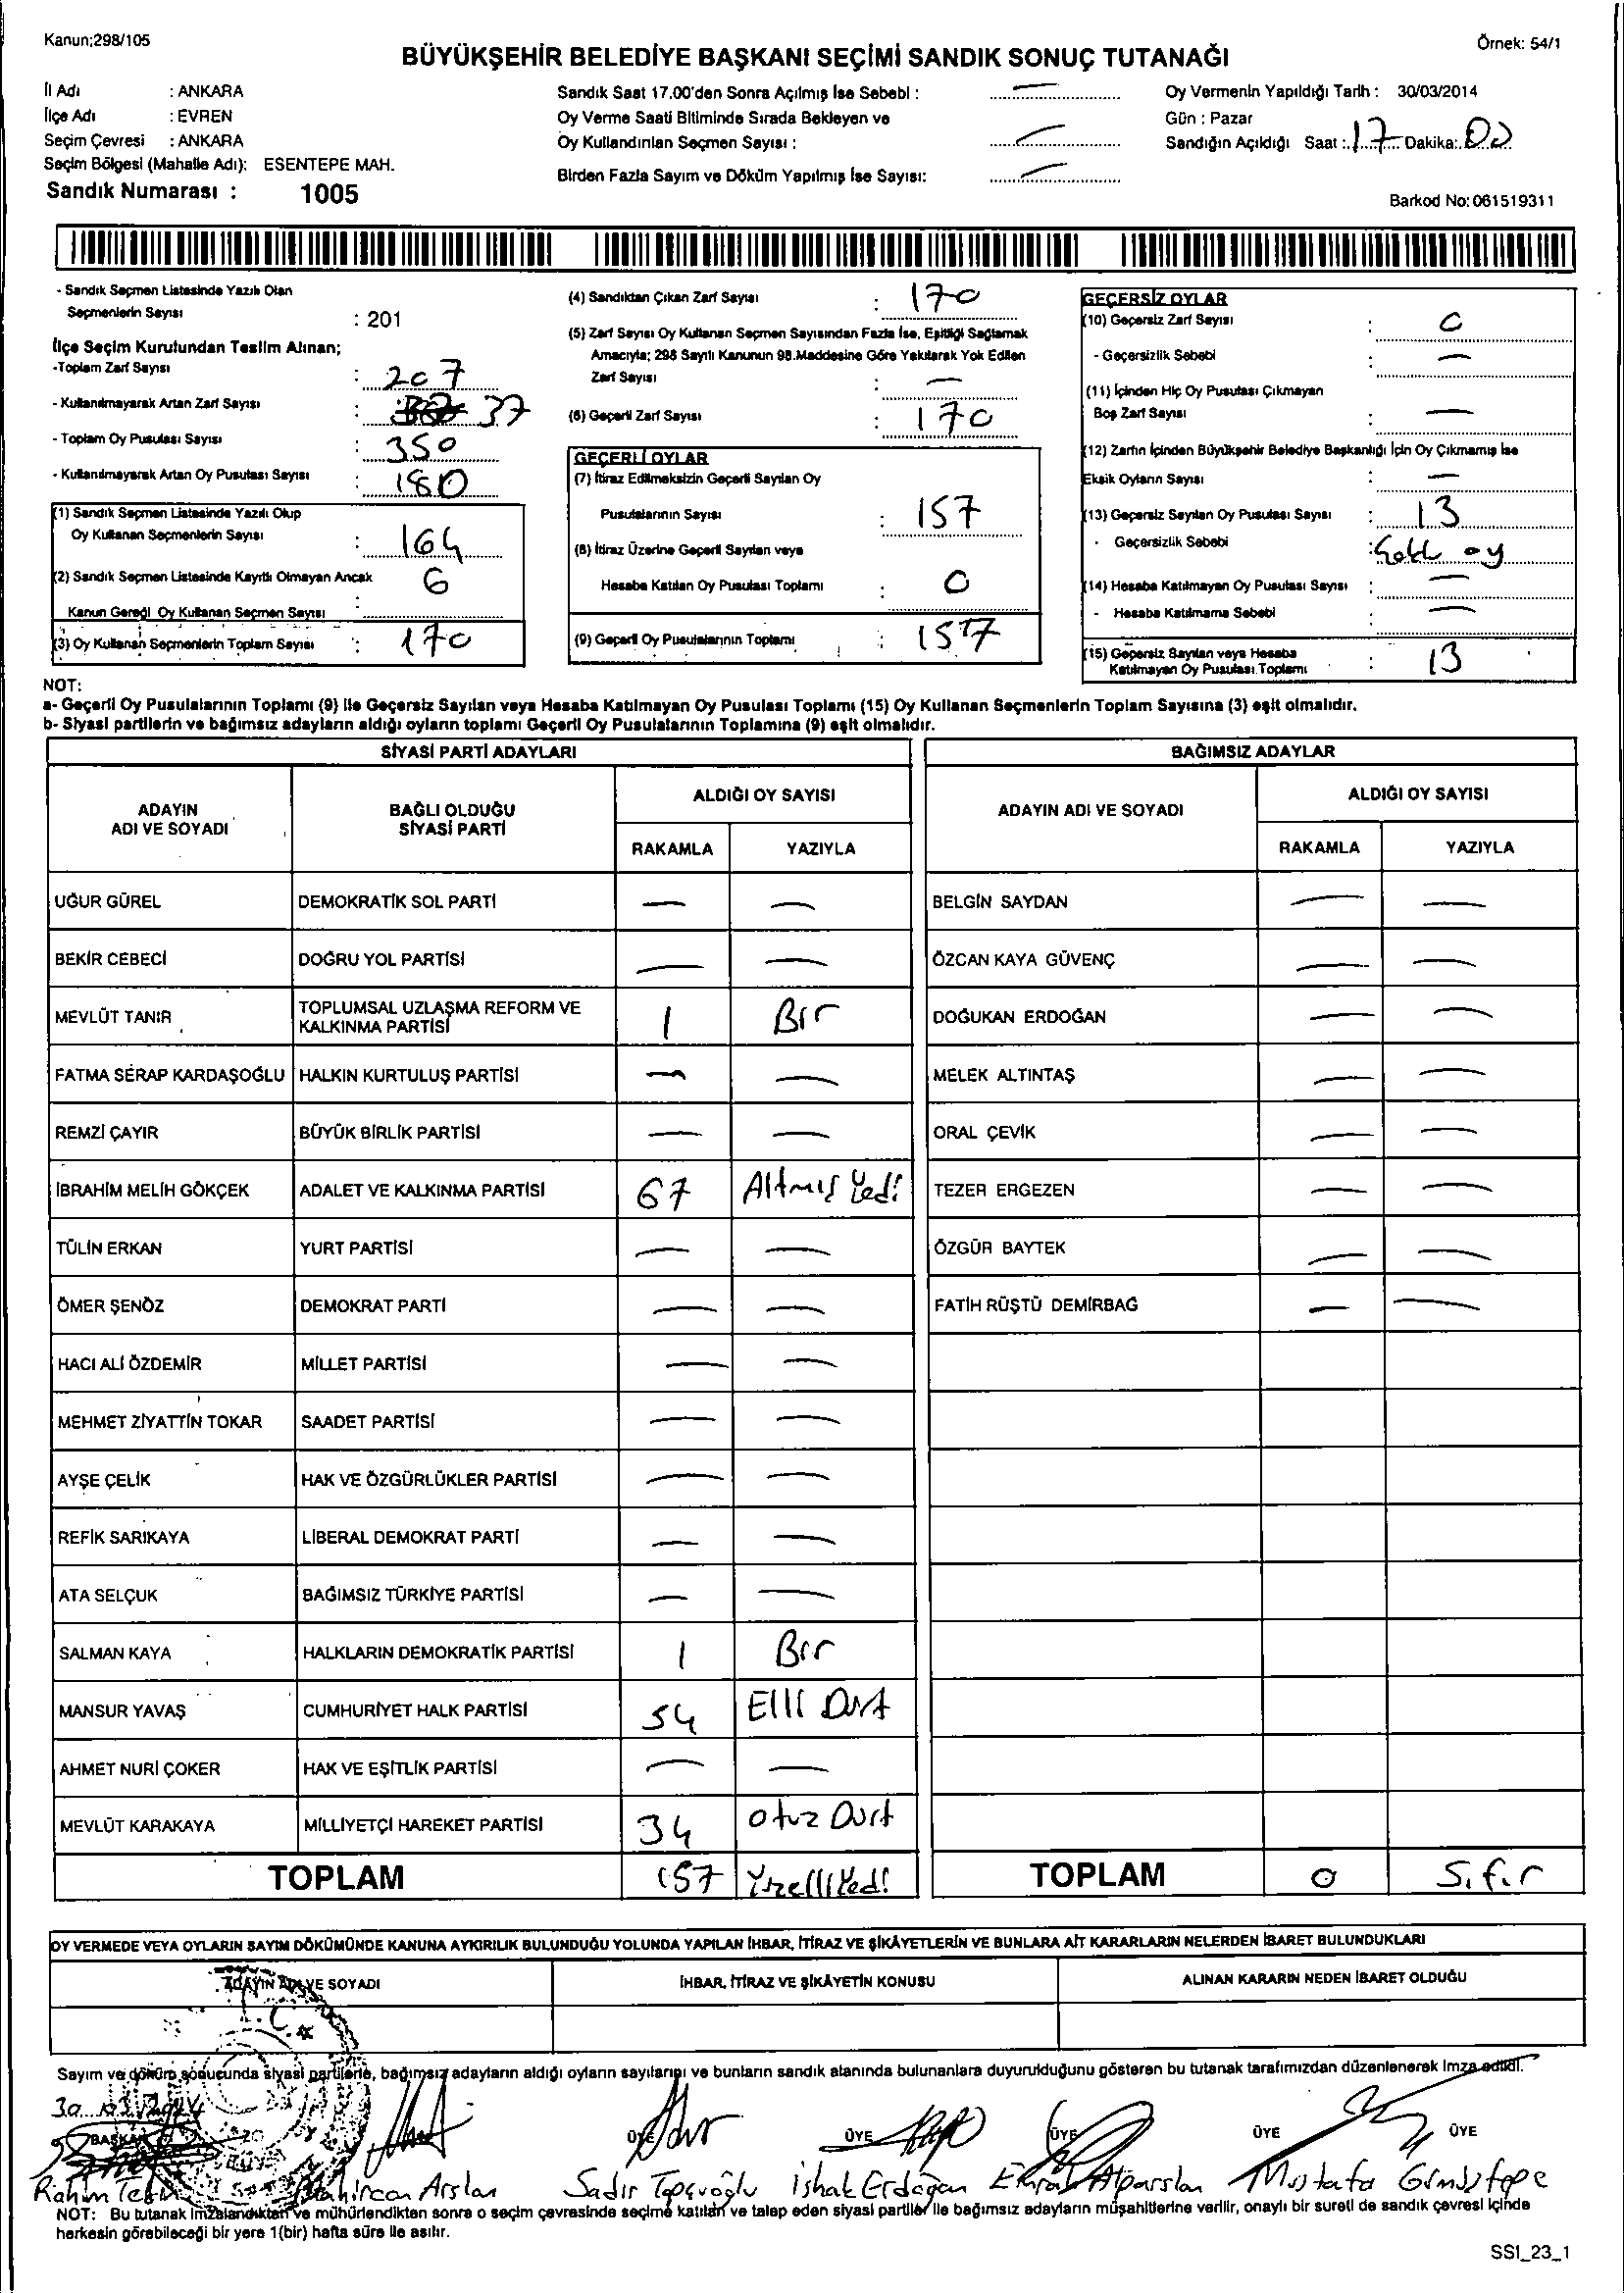 Kanun;298/105
Örnek: 54/1
BÜYÜKŞEHİR BELEDİYE BAŞKANI SEÇİMİ SANDIK SONUÇ TUTANAĞI
İl Adı : ANKARA
İlçe Adı : EVREN
Seçim Çevresi : ANKARA
Seçim Bölgesi (Mahalle Adı): ESENTEPE MAH.
Sandık Numarası : 1005
Sandık Saat 17.00'den Sonra Açılmış İse Sebebi : —
Oy Verme Saati Bitiminde Sırada Bekleyen ve
Oy Kullandırılan Seçmen Sayısı : —
Birden Fazla Sayım ve Döküm Yapılmış İse Sayısı: —
Oy Vermenin Yapıldığı Tarih : 30/03/2014
Gün : Pazar
Sandığın Açıldığı Saat : 17 Dakika: 00
Barkod No: 061519311
- Sandık Seçmen Listesinde Yazılı Olan
Seçmenlerin Sayısı : 201
İlçe Seçim Kurulundan Teslim Alınan;
-Toplam Zarf Sayısı : 207
- Kullanılmayarak Artan Zarf Sayısı : 37
- Toplam Oy Pusulası Sayısı : 350
- Kullanılmayarak Artan Oy Pusulası Sayısı : 180
(1) Sandık Seçmen Listesinde Yazılı Olup
Oy Kullanan Seçmenlerin Sayısı : 164
(2) Sandık Seçmen Listesinde Kayıtlı Olmayan Ancak
Kanun Gereği Oy Kullanan Seçmen Sayısı : 6
(3) Oy Kullanan Seçmenlerin Toplam Sayısı : 170
(4) Sandıktan Çıkan Zarf Sayısı : 170
(5) Zarf Sayısı Oy Kullanan Seçmen Sayısından Fazla İse, Eşitliği Sağlamak
Amacıyla; 298 Sayılı Kanunun 98.Maddesine Göre Yakılarak Yok Edilen
Zarf Sayısı : —
(6) Geçerli Zarf Sayısı : 170
GEÇERLİ OYLAR
(7) İtiraz Edilmeksizin Geçerli Sayılan Oy
Pusulalarının Sayısı : 157
(8) İtiraz Üzerine Geçerli Sayılan veya
Hesaba Katılan Oy Pusulası Toplamı : 0
(9) Geçerli Oy Pusulalarının Toplamı : 157
GEÇERSİZ OYLAR
(10) Geçersiz Zarf Sayısı : 0
- Geçersizlik Sebebi : —
(11) İçinden Hiç Oy Pusulası Çıkmayan
Boş Zarf Sayısı : —
(12) Zarfın İçinden Büyükşehir Belediye Başkanlığı İçin Oy Çıkmamış İse
Eksik Oyların Sayısı : —
(13) Geçersiz Sayılan Oy Pusulası Sayısı : 13
- Geçersizlik Sebebi : oy
(14) Hesaba Katılmayan Oy Pusulası Sayısı : —
- Hesaba Katılmama Sebebi : —
(15) Geçersiz Sayılan veya Hesaba
Katılmayan Oy Pusulası Toplamı : 13
NOT:
a- Geçerli Oy Pusulalarının Toplamı (9) ile Geçersiz Sayılan veya Hesaba Katılmayan Oy Pusulası Toplamı (15) Oy Kullanan Seçmenlerin Toplam Sayısına (3) eşit olmalıdır.
b- Siyasi partilerin ve bağımsız adayların aldığı oyların toplamı Geçerli Oy Pusulalarının Toplamına (9) eşit olmalıdır.
SİYASİ PARTİ ADAYLARI
ADAYIN ADI VE SOYADI BAĞLI OLDUĞU SİYASİ PARTİ ALDIĞI OY SAYISI
RAKAMLA YAZIYLA
UĞUR GÜREL DEMOKRATİK SOL PARTİ — —
BEKİR CEBECİ DOĞRU YOL PARTİSİ — —
MEVLÜT TANIR TOPLUMSAL UZLAŞMA REFORM VE KALKINMA PARTİSİ 1 Bir
FATMA SERAP KARDAŞOĞLU HALKIN KURTULUŞ PARTİSİ — —
REMZİ ÇAYIR BÜYÜK BİRLİK PARTİSİ — —
İBRAHİM MELİH GÖKÇEK ADALET VE KALKINMA PARTİSİ 67 Altmış Yedi
TÜLİN ERKAN YURT PARTİSİ — —
ÖMER ŞENÖZ DEMOKRAT PARTİ — —
HACI ALİ ÖZDEMİR MİLLET PARTİSİ — —
MEHMET ZİYATTİN TOKAR SAADET PARTİSİ — —
AYŞE ÇELİK HAK VE ÖZGÜRLÜKLER PARTİSİ — —
REFİK SARIKAYA LİBERAL DEMOKRAT PARTİ — —
ATA SELÇUK BAĞIMSIZ TÜRKİYE PARTİSİ — —
SALMAN KAYA HALKLARIN DEMOKRATİK PARTİSİ 1 Bir
MANSUR YAVAŞ CUMHURİYET HALK PARTİSİ 54 Elli Dört
AHMET NURİ ÇOKER HAK VE EŞİTLİK PARTİSİ — —
MEVLÜT KARAKAYA MİLLİYETÇİ HAREKET PARTİSİ 34 otuz Dört
TOPLAM 157 Yüzelli Yedi
BAĞIMSIZ ADAYLAR
ADAYIN ADI VE SOYADI ALDIĞI OY SAYISI
RAKAMLA YAZIYLA
BELGİN SAYDAN — —
ÖZCAN KAYA GÜVENÇ — —
DOĞUKAN ERDOĞAN — —
MELEK ALTINTAŞ — —
ORAL ÇEVİK — —
TEZER ERGEZEN — —
ÖZGÜR BAYTEK — —
FATİH RÜŞTÜ DEMİRBAĞ — —
TOPLAM 0 Sıfır
OY VERMEDE VEYA OYLARIN SAYIM DÖKÜMÜNDE KANUNA AYKIRILIK BULUNDUĞU YOLUNDA YAPILAN İHBAR, İTİRAZ VE ŞİKÂYETLERİN VE BUNLARA AİT KARARLARIN NELERDEN İBARET BULUNDUKLARI
ADAYIN ADI VE SOYADI İHBAR, İTİRAZ VE ŞİKÂYETİN KONUSU ALINAN KARARIN NEDEN İBARET OLDUĞU
Sayım ve döküm sonucunda siyasi partilerle, bağımsız adayların aldığı oyların sayılarını ve bunların sandık alanında bulunanlara duyurulduğunu gösteren bu tutanak tarafımızdan düzenlenerek imza edildi.
30/03/2014
BAŞKAN ÜYE ÜYE ÜYE ÜYE ÜYE
Rahim Arslan Sadır Topçuoğlu İshak Erdoğan Alparslan Mustafa Gümüştepe
NOT: Bu tutanak imzalandıktan ve mühürlendikten sonra o seçim çevresinde seçime katılan ve talep eden siyasi partiler ile bağımsız adayların müşahitlerine verilir, onaylı bir sureti de sandık çevresi içinde
herkesin görebileceği bir yere 1(bir) hafta süre ile asılır.
SSI_23_1